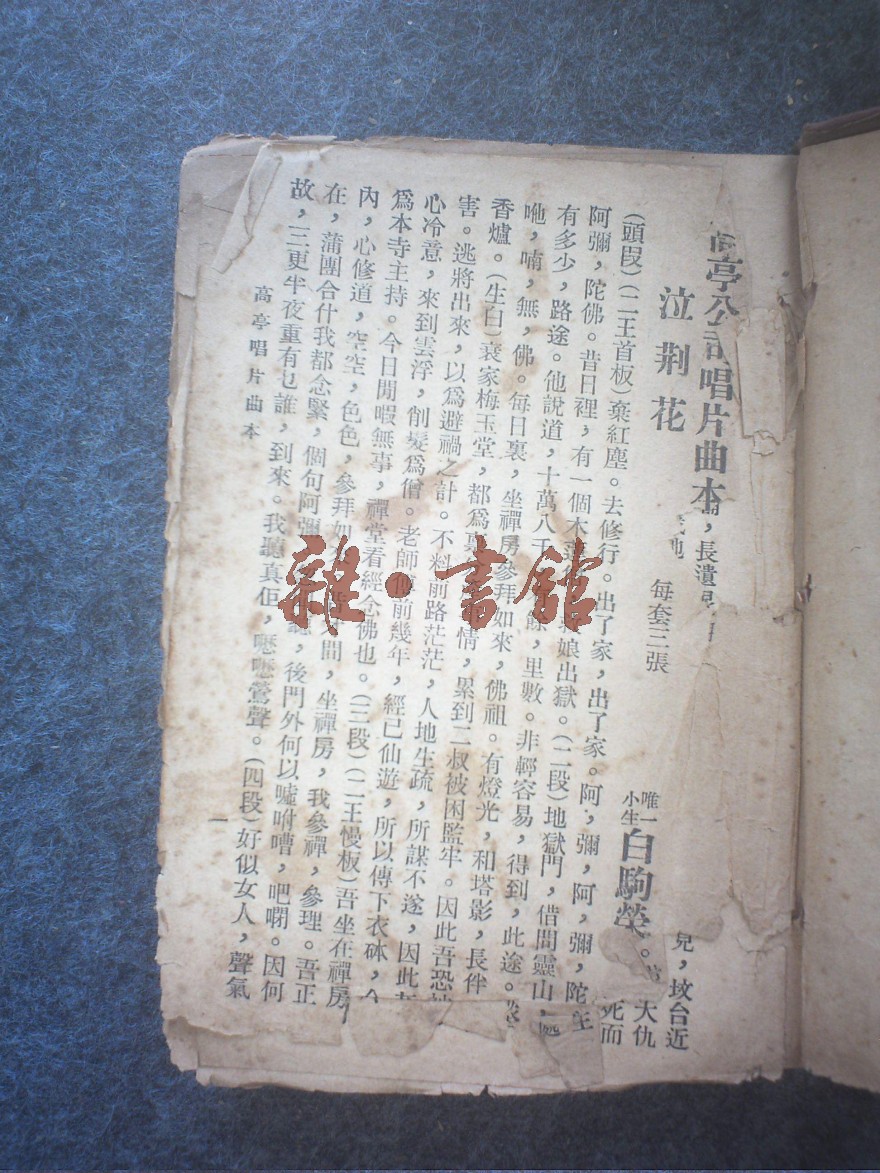 亭公司唱片曲本
，長遺
兒，墳台近
泣荆花
每套三張
唯一小生
白駒榮
大仇
死而
(頭段)(二王首板)棄紅塵。去修行。出了家，出了家。阿，彌，阿，彌，陀
阿彌，陀佛。昔日裡，有一個木蓮 娘出獄。(二段)地獄門，借問靈山，
有多少，路途。他說道，十萬八千 餘，里數。非輕容易，得到，此途。
吔，喃，無，佛。每日裏，坐禪房參拜如來，佛祖。有燈光，和塔影，長伴
香爐。(生白)袁家梅玉堂，都爲 情，累到二叔被困監牢。因此吾恐
害。逃將出來，以爲避禍之計。不料前路茫茫，人地生疏，所謀不遂，因此
心冷意，來到雲浮，削髮爲僧。老師傅前幾年，經已仙遊，所以傳下衣砵，
爲本寺主持。今日閒暇無事，禪堂看經念佛也。(三段)(二王慢板)吾坐在禪房
內，心修道，空空，色色，參拜如 間，坐禪房，我參禪，參理。吾正
在，蒲團合什我都念緊，個句阿彌 ，後門外何以噓咐嘈，吧嘶。因何
故，三更半夜重有乜誰，到來。我聽真佢，嚦嚦鶯聲。(四段)好似女人，聲氣
高亭唱片曲本
一
雜·書館